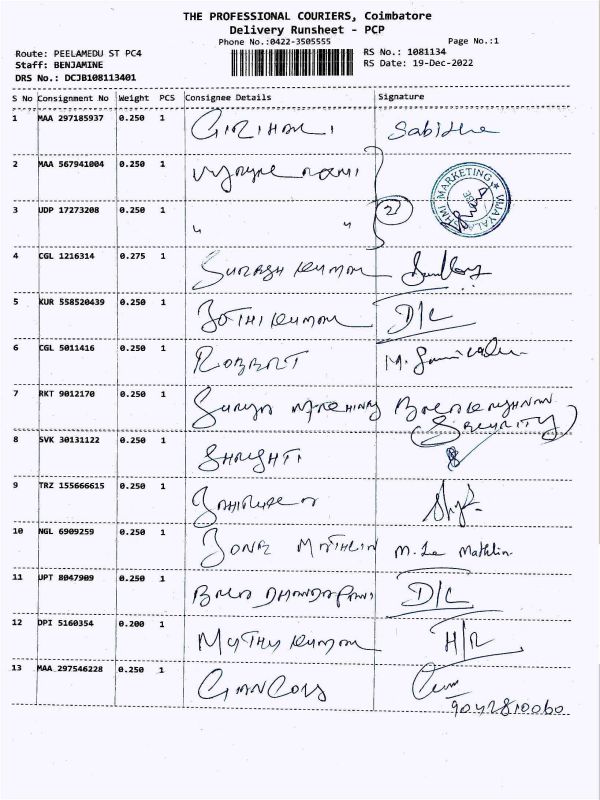 THE PROFESSIONAL COURIERS, Coimbatore
Delivery Runsheet - PCP
Phone No.:0422-3505555
Page No.:1
Route: PEELAMEDU ST PC4
RS No.: 1081134
Staff: BENJAMINE
RS Date: 19-Dec-2022
DRS No.: DCJB108113401
S No Consignment No Weight PCS Consignee Details Signature
1 MAA 297185937 0.250 1 GIRIHARI
2 MAA 567941004 0.250 1
VIJAYALAKSHMI MARKETING
3 UDP 17273208 0.250 1 " " 2
4 CGL 1216314 0.275 1 SURESH KUMAR
5 KUR 558520439 0.250 1 JOTHI KUMAR D/L
6 CGL 5011416 0.250 1 ROBERT
7 RKT 9012170 0.250 1 SURYA BALAKRISHNAN
(SECURITY)
8 SVK 30131122 0.250 1 SHRISHTI
9 TRZ 155666615 0.250 1
10 NGL 6909259 0.250 1 M.
11 UPT 8047909 0.250 1 BALA DHANDAPANI D/L
12 DPI 5160354 0.200 1 MUTHU KUMAR H/R
13 MAA 297546228 0.250 1
9042810060